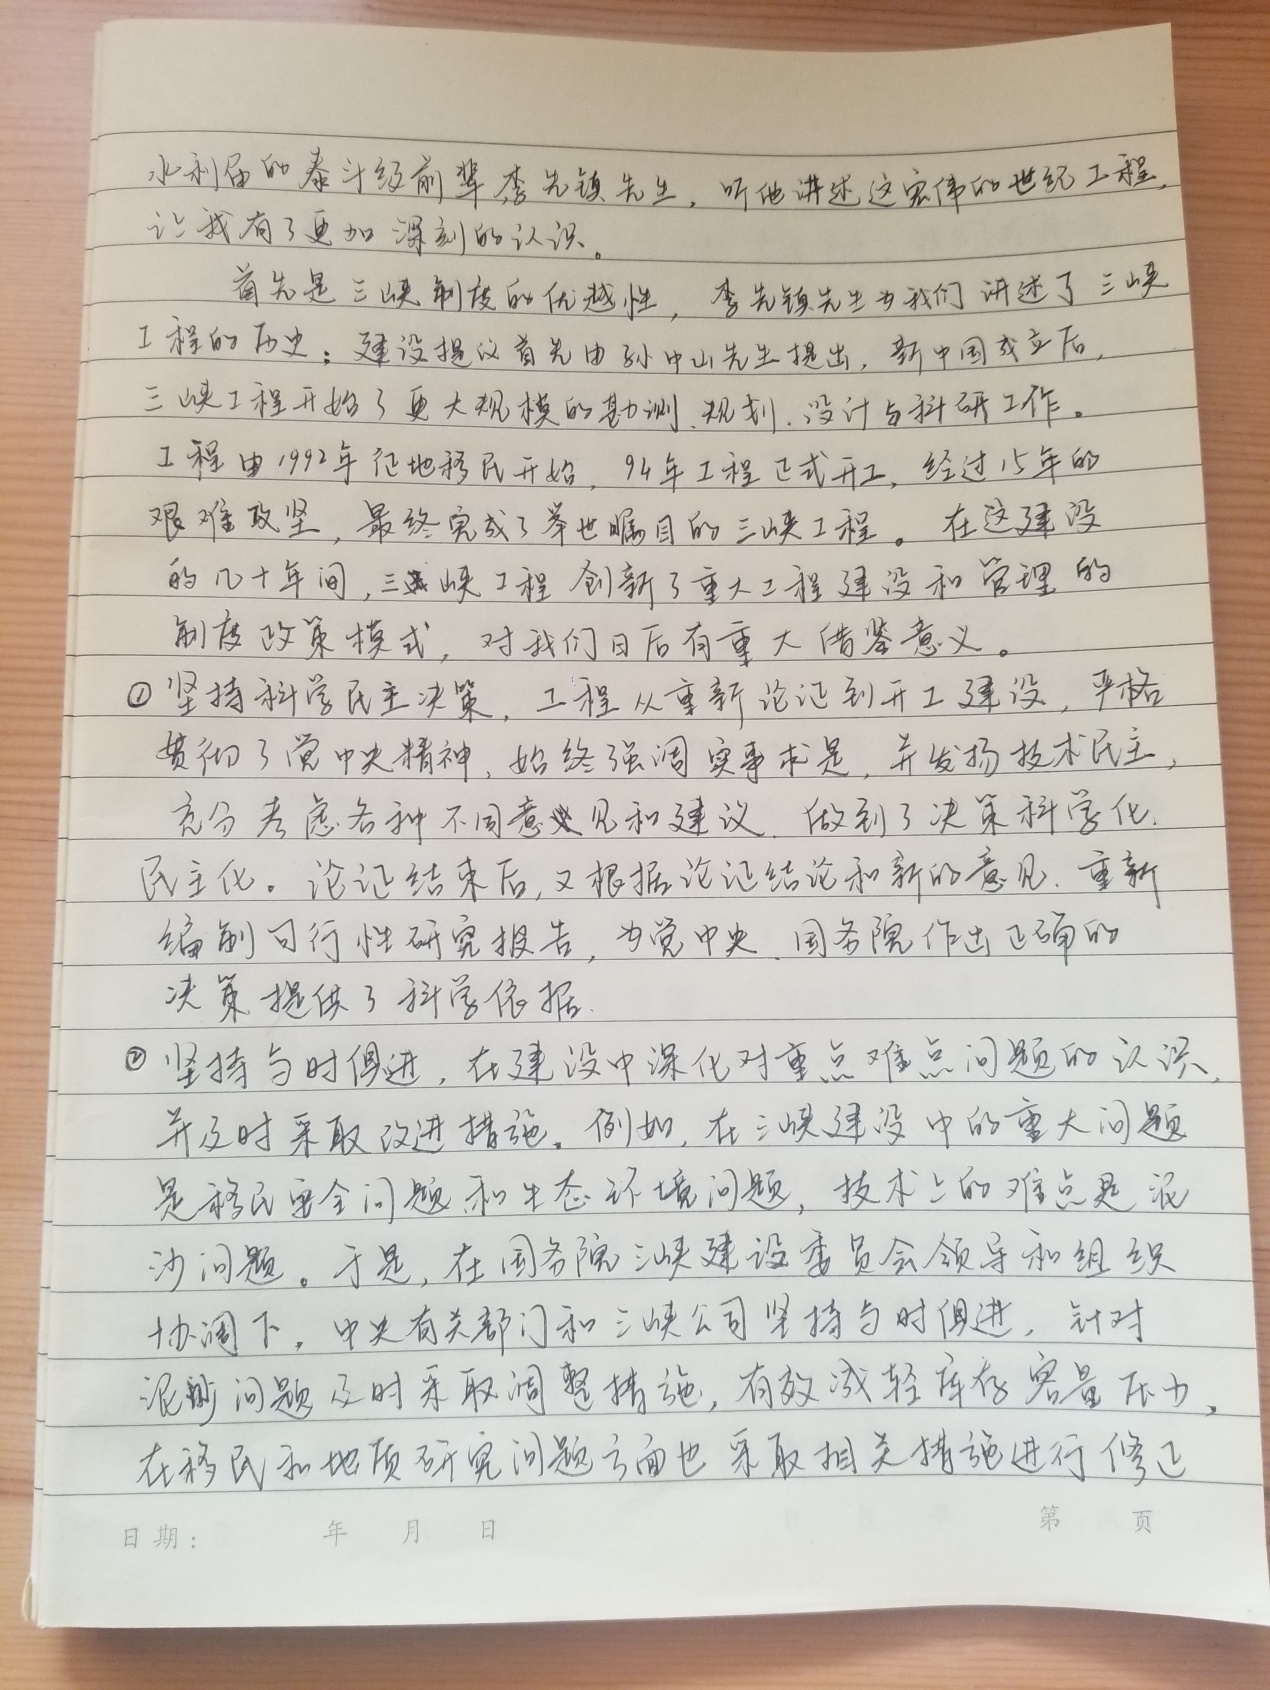 水利届的泰斗级前辈李先镇先生，听他讲述这宏伟的世纪工程，
让我有了更加深刻的认识。
首先是三峡制度的优越性，李先镇先生为我们讲述了三峡
工程的历史：建设提议首先由孙中山先生提出，新中国成立后，
三峡工程开始了更大规模的勘测、规划、设计与科研工作。
工程由1992年征地移民开始，94年工程正式开工，经过15年的
艰难攻坚，最终完成了举世瞩目的三峡工程。在这建设
的几十年间，三峡工程创新了重大工程建设和管理的
制度政策模式，对我们日后有重大借鉴意义。
①坚持科学民主决策，工程从重新论证到开工建设，严格
贯彻了党中央精神，始终强调实事求是，并发扬技术民主，
充分考虑各种不同意见和建议，做到了决策科学化、
民主化。论证结束后，又根据论证结论和新的意见，重新
编制可行性研究报告，为党中央、国务院作出正确的
决策提供了科学依据.
②坚持与时俱进，在建设中深化对重点难点问题的认识，
并及时采取改进措施。例如，在三峡建设中的重大问题
是移民安全问题和生态环境问题，技术上的难点是泥
沙问题。于是，在国务院三峡建设委员会领导和组织
协调下，中央有关部门和三峡公司坚持与时俱进，针对
泥沙问题及时采取调整措施，有效减轻库存容量压力，
在移民和地质研究问题方面也采取相关措施进行修正
日期： 年 月 日 第 页